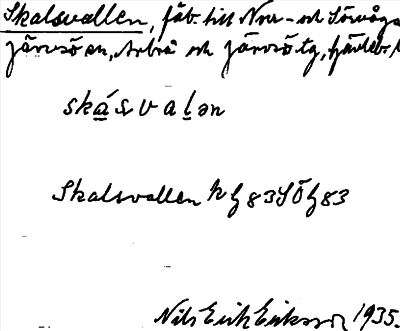 Skalsvallen, fäb. till Norr- och Sörvåga
Järvsö sn, Arbrå och Järvsö tg, Gävleb.
skálsvalən
Skalsvallen
Nils Erik Eriksson 1935.